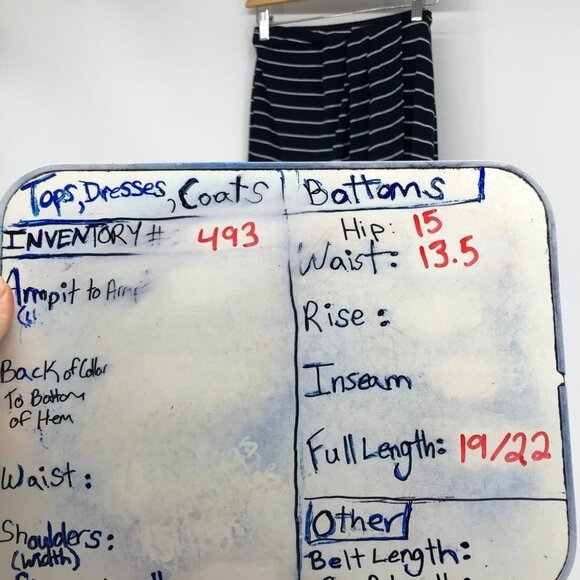 Tops, Dresses, Coats
INVENTORY # 493
Armpit to Armpi
Back of Collar
To Bottom
of Hem
Waist:
Shoulders:
(width)
Bottoms
Hip: 15
Waist: 13.5
Rise:
Inseam
Full Length: 19/22
Other
Belt Length: